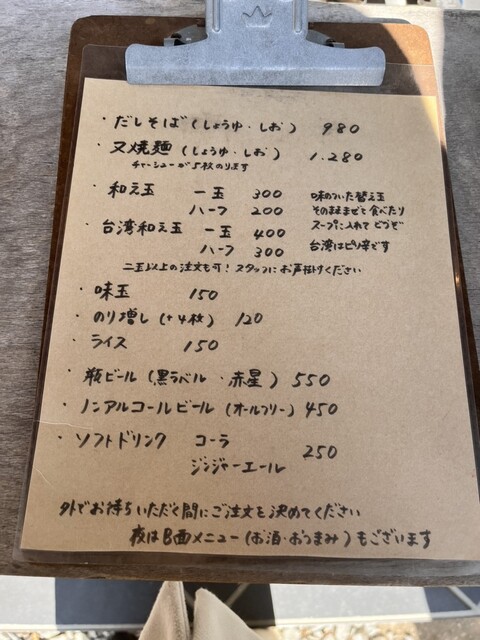 ・だしそば(しょうゆ・しお) 980
・叉焼麺(しょうゆ・しお) 1.280
チャーシューが5枚のります
・和え玉 一玉 300 味のついた替え玉
ハーフ 200 そのまままぜて食べたり
・台湾和え玉 一玉 400 スープに入れてどうぞ
ハーフ 300 台湾はピリ辛です
二玉以上の注文も可!スタッフにお声掛けください
・味玉 150
・のり増し(+4枚) 120
・ライス 150
・瓶ビール(黒ラベル・赤星) 550
・ノンアルコールビール(オールフリー) 450
・ソフトドリンク コーラ 250
ジンジャーエール
外でお待ちいただく間にご注文を決めてください
夜はB面メニュー(お酒・おつまみ)もございます